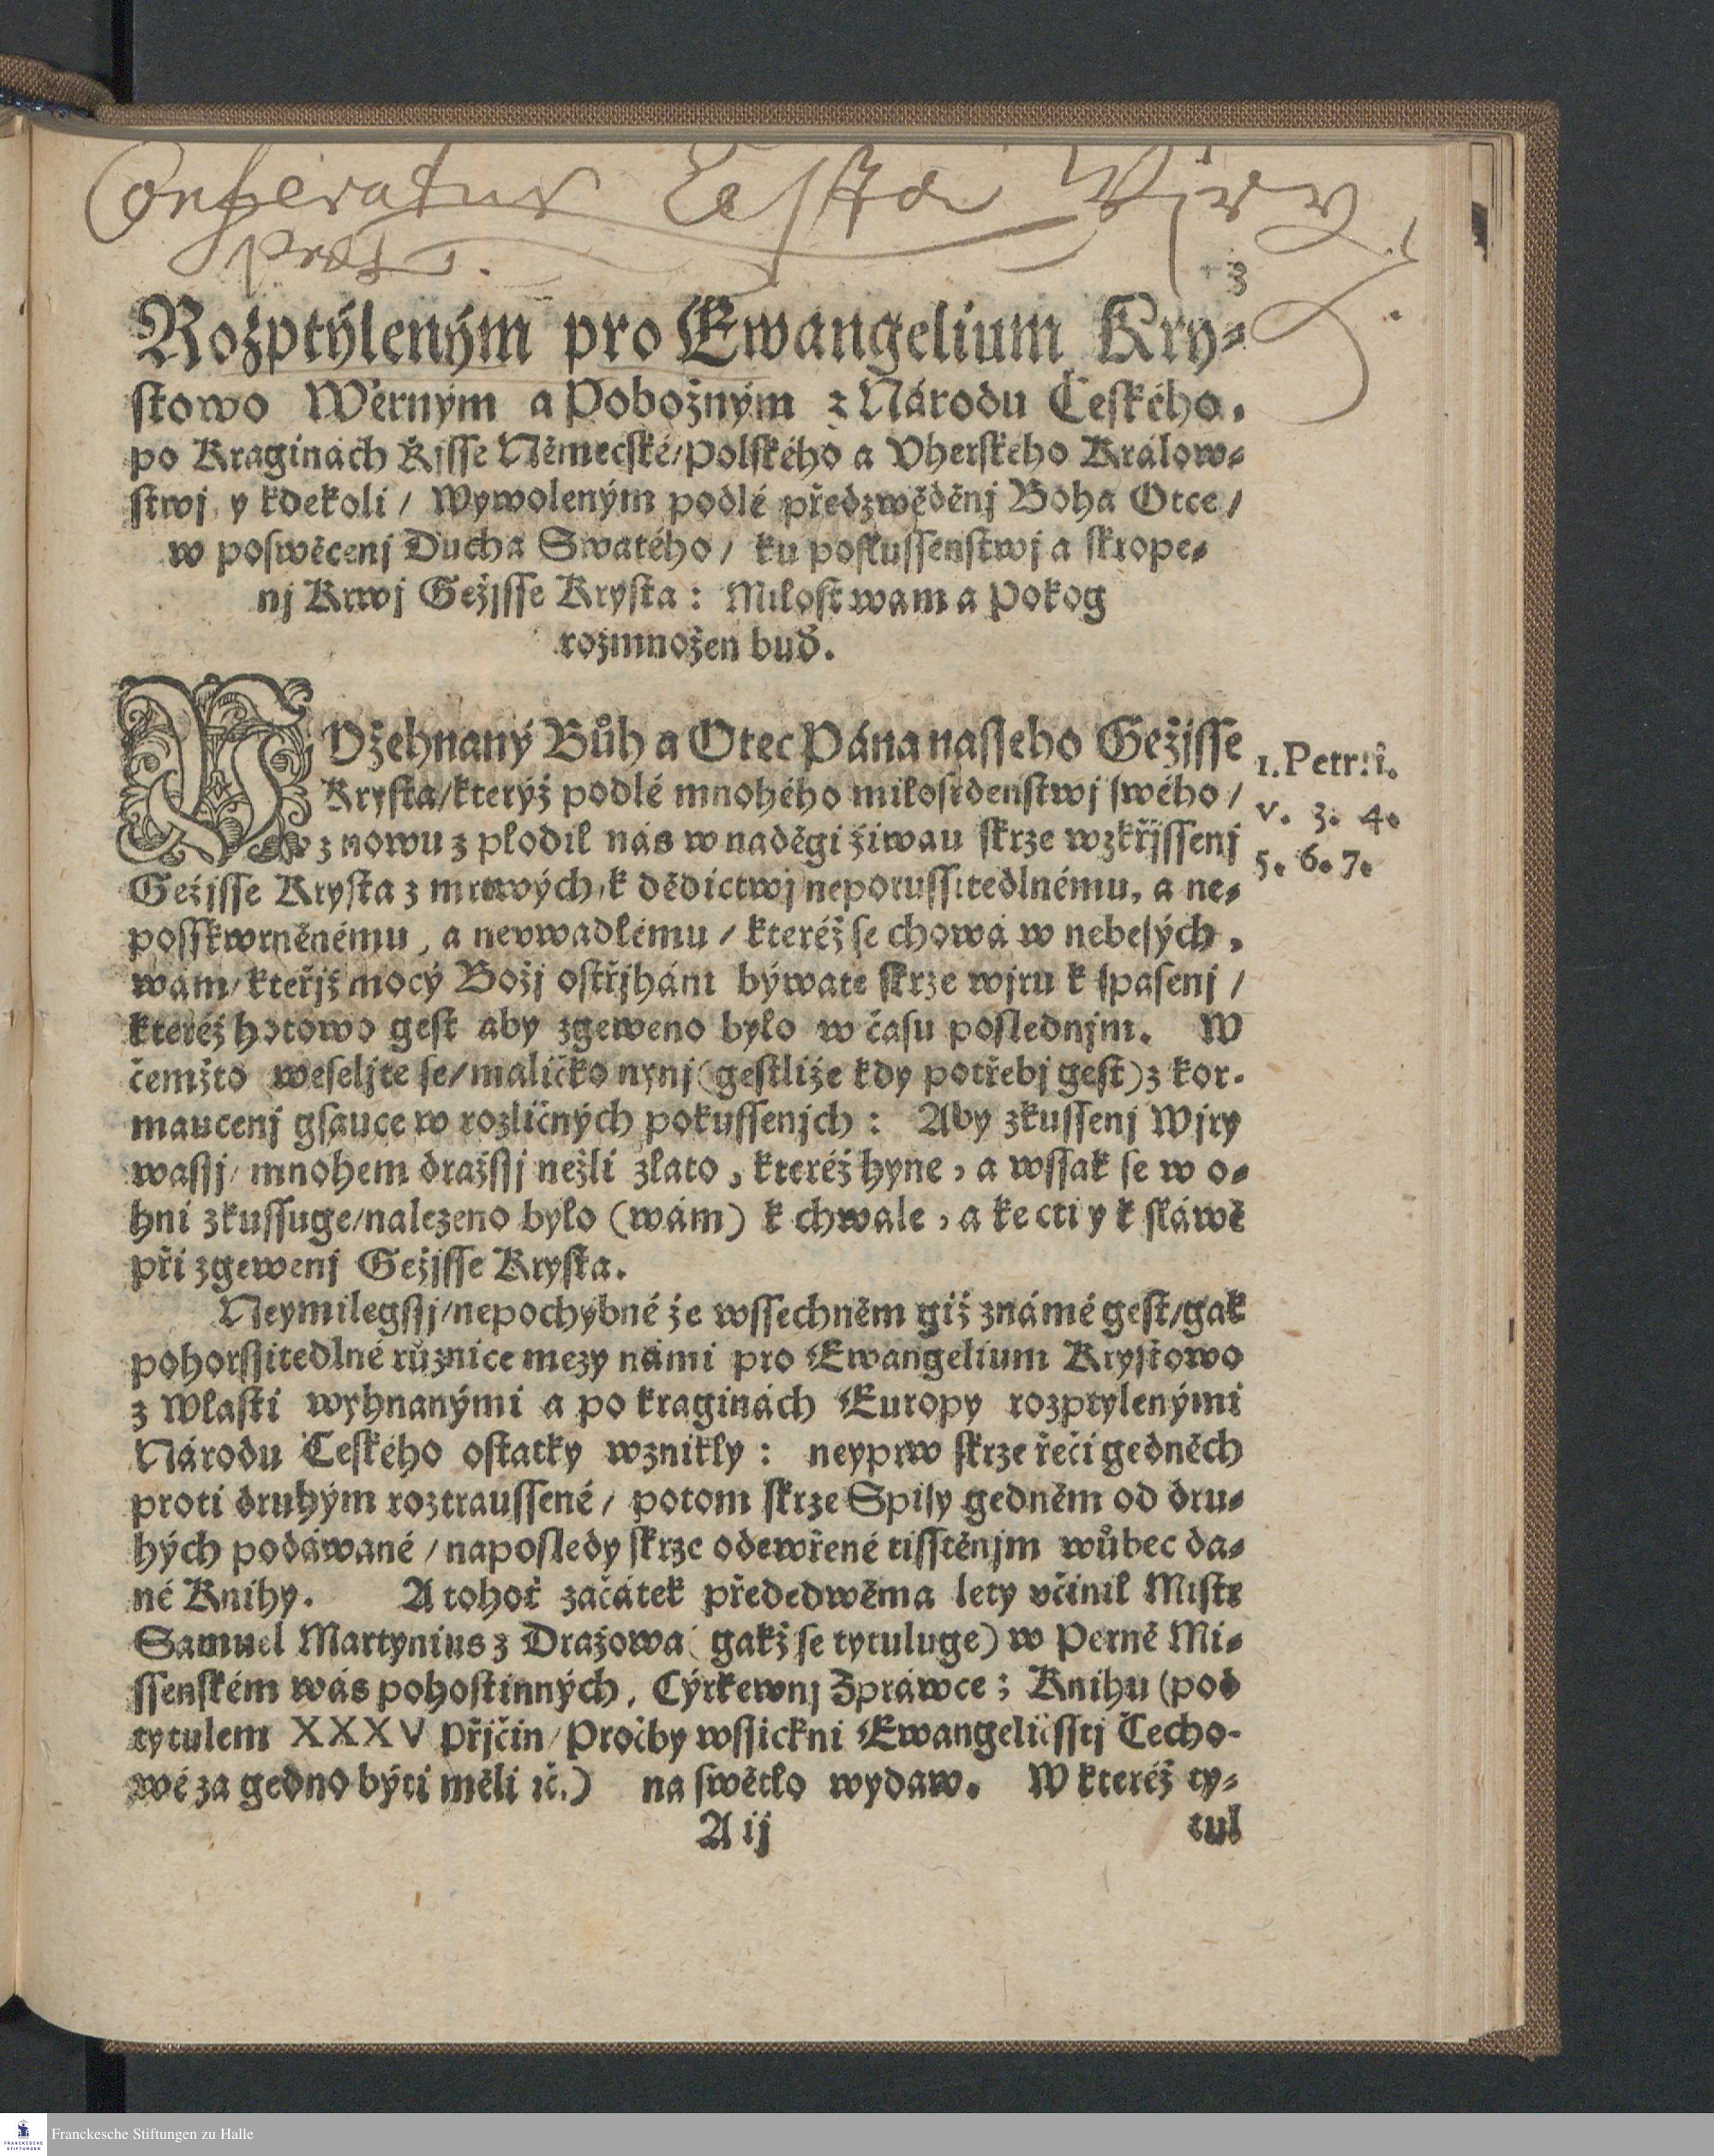 Conferatur Cesta Wiry
3
Rozptýleným pro Ewangelium Kry-
stowo Wěrným a Pobožným z Národu Českého,
po Kraginách Ržjsse Německé/Polského a Vherského Králow-
stwj y kdekoli / Wywoleným podlé předzwěděnj Boha Otce /
w poswěcenj Ducha Swatého / ku poslussenstwj a skrope-
nj Krwj Gežjsse Krysta: Milost wám a Pokog
rozmnožen buď.
POžehnaný Bůh a Otec Pána nasseho Gežjsse
Krysta/kterýž podlé mnohého milosrdenstwj swého /
z nowu z plodil nás w naděgi žiwau skrze wzkřjssenj
Gežjsse Krysta z mrtwých, k dědictwj neporussitedlnému, a ne-
posskwrněnému, a nevwadlému / kteréž se chowá w nebesých,
wám/kteřjž mocý Božj ostřjháni býwate skrze wjru k spasenj /
kteréž hotowo gest aby zgeweno bylo w času poslednjm. W
čemžto weseljte se/maličko nynj (gestliže kdy potřebj gest) z kor-
maucenj gsauce w rozličných pokussenjch: Aby zkussenj Wjry
wassj/mnohem dražssj nežli zlato, kteréž hyne, a wssak se w o-
hni zkussuge/nalezeno bylo (wám) k chwale, a ke cti y k sláwě
při zgewenj Gežjsse Krysta.
Neymilegssj/nepochybné že wssechněm giž známé gest/gak
pohorssitedlné různice mezy námi pro Ewangelium Krystowo
z Wlasti wyhnanými a po kraginách Europy rozptylenými
Národu Českého ostatky wznikly: neyprw skrze řeči gedněch
proti druhým roztraussené / potom skrze Spisy gedněm od dru-
hých podáwané / naposledy skrze odewřené tisstěnjm wůbec da-
né Knihy. A tohoť začátek přededwěma lety včinil Mistr
Samuel Martynius z Dražowa (gakž se tytuluge) w Perně Mi-
ssenském wás pohostinných, Cýrkewnj Zpráwce; Knihu (pod
tytulem XXXV Přjčin/Pročby wssickni Ewangeličsstj Čecho-
wé za gedno býti měli ꝛč.) na swětlo wydaw. W kteréž ty-
A ij
tul
1. Petr. 1.
v. 3. 4.
5. 6. 7.
Franckesche Stiftungen zu Halle